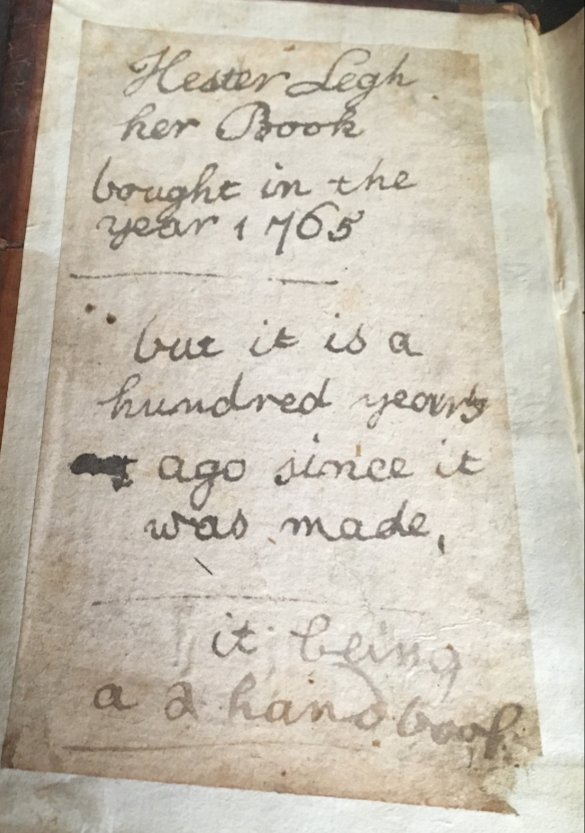 Hester Legh
her Book
bought in the
year 1765
but it is a
hundred years
ago since it
was made,
it being
a 2 hand book